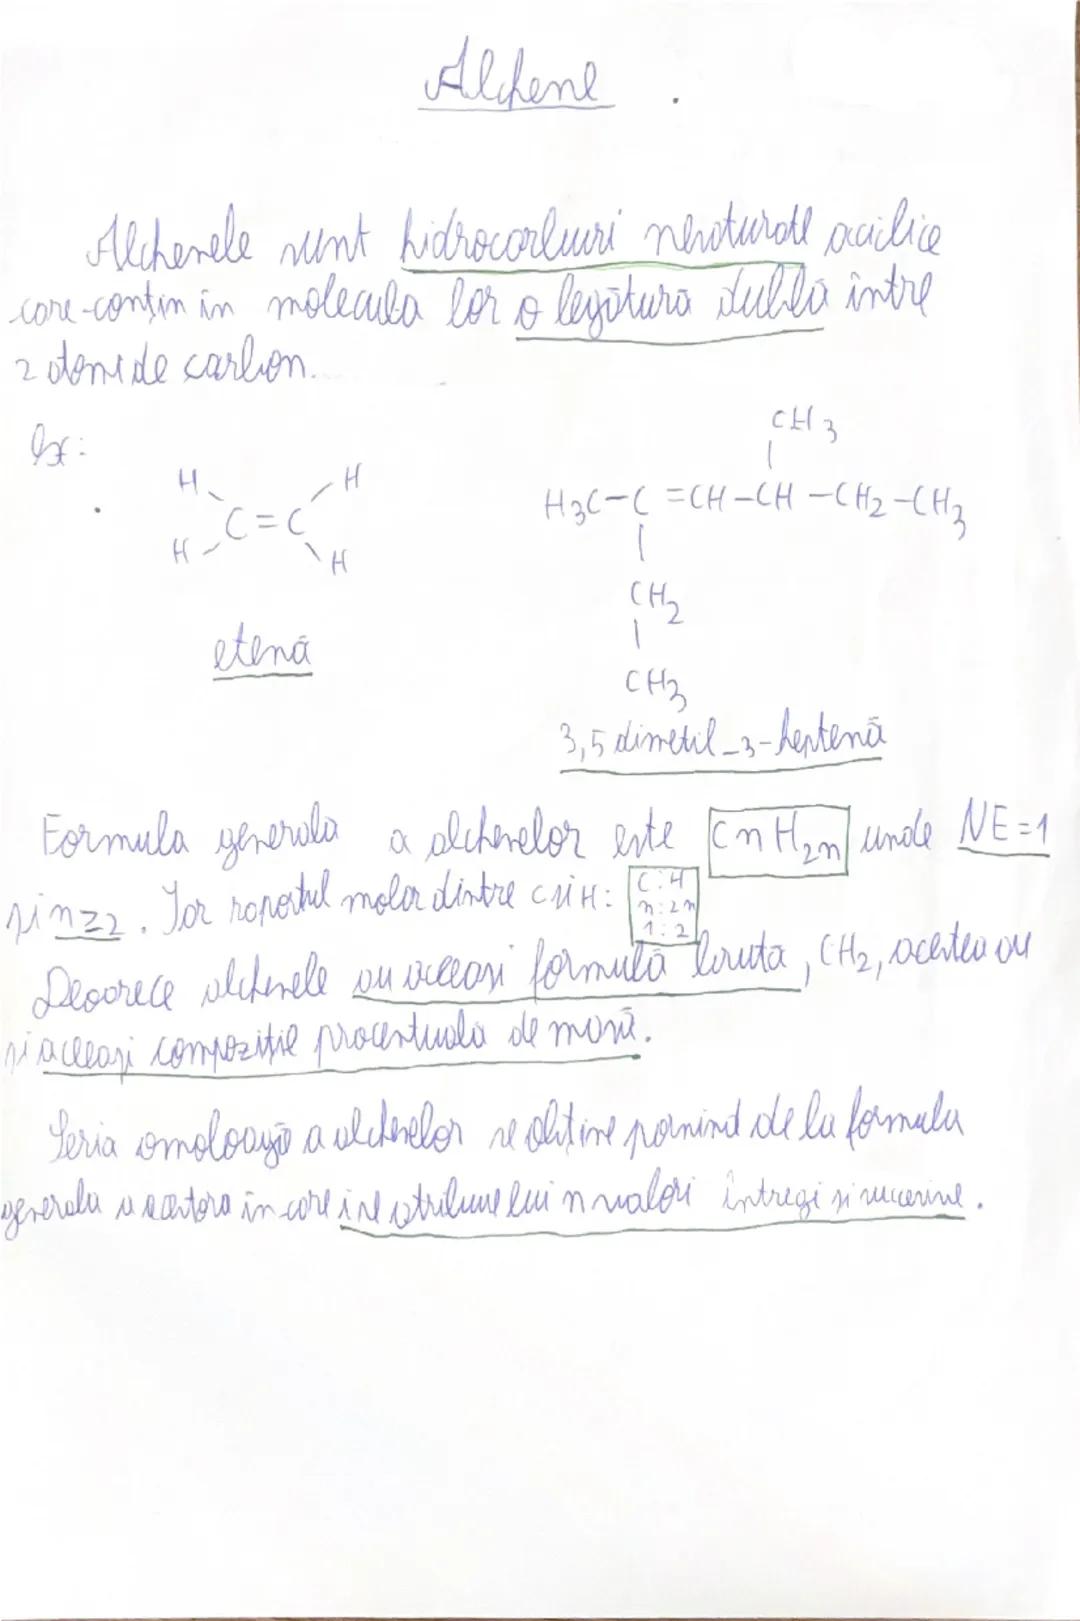 Alchene
Alchenele sunt hidrocarburi nesaturate aciclice
care conțin în molecula lor o legătură dublă între
2 atomi de carbon.
Ex:
CH3
H H
H3C-C=CH-CH-CH2-CH3
C=C
H H
CH2
etenă
CH3
3,5 dimetil-3-heptenă
Formula generala a alchenelor este CnH2n unde NE=1
și n≥2. Iar raportul molar dintre C și H: C:H
n:2n
1:2
Deoarece alchenele au aceeasi formulă brută, CH2, acestea au
și aceeași compoziție procentuala de masă.
Seria omoloagă a alchenelor se obtine pornind de la formula
generala a acestora in care i se atribuie lui n valori întregi si succesive.